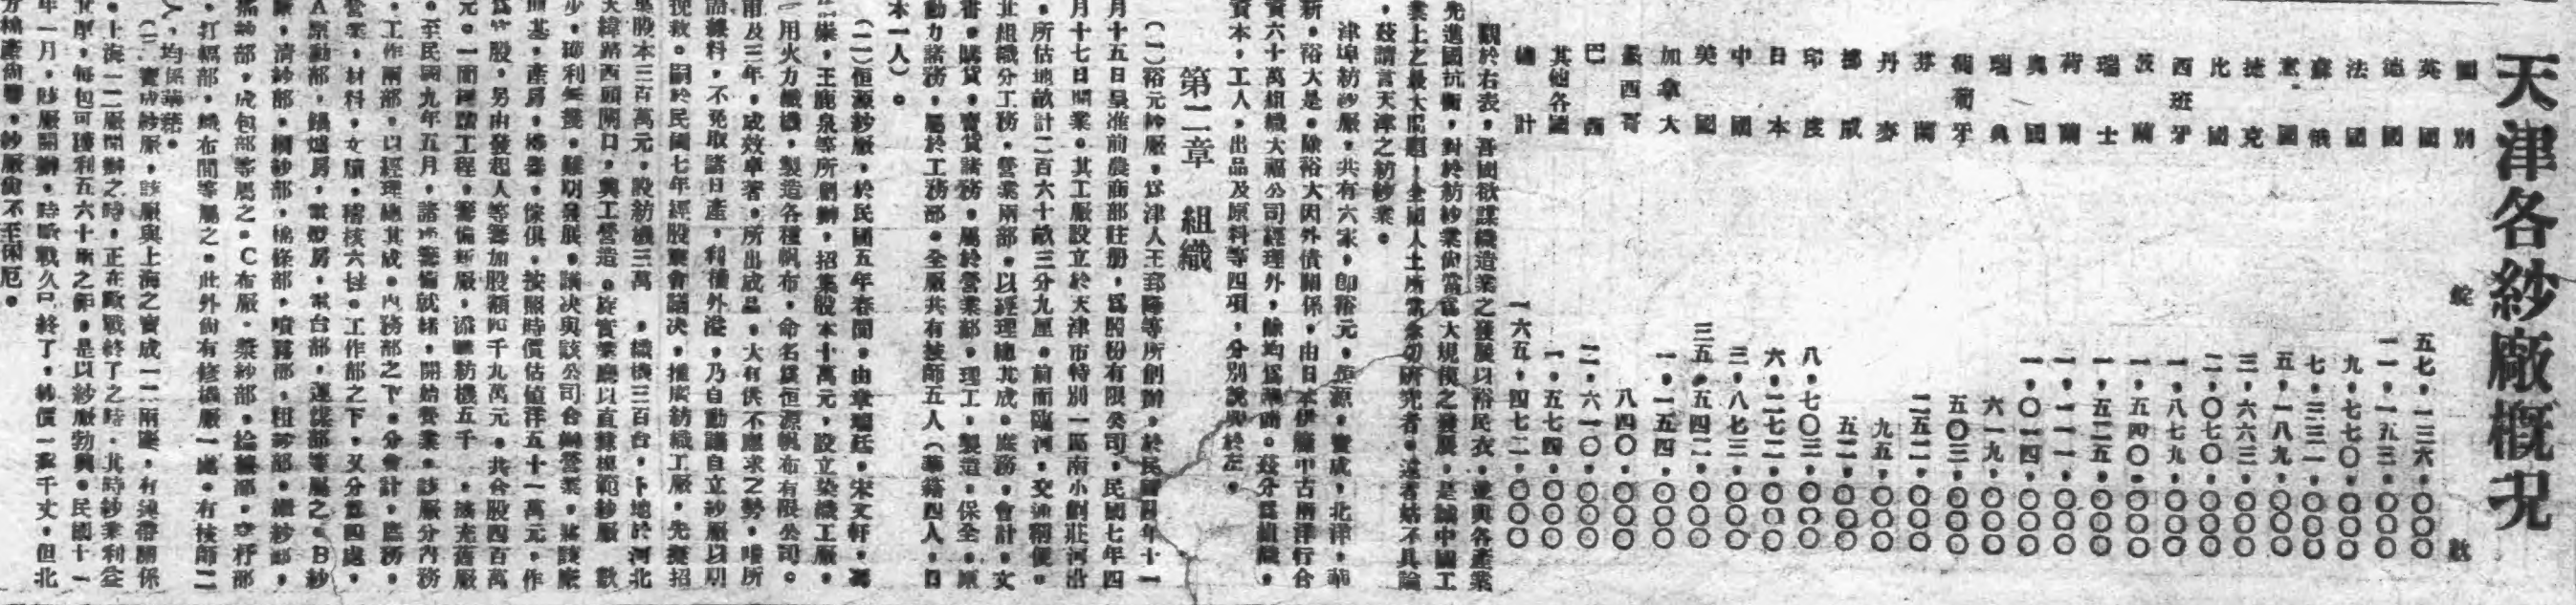 天津各紗廠概況
國別 錠數
英國 五七・一三六・〇〇〇
德國 一一・一五三・〇〇〇
法國 九・七七〇・〇〇〇
蘇俄 七・三三一・〇〇〇
意國 五・一八九・〇〇〇
捷克 三・六六三・〇〇〇
比國 二・〇七〇・〇〇〇
西班牙 一・八七九・〇〇〇
波蘭 一・五四〇・〇〇〇
瑞士 一・五二五・〇〇〇
荷蘭 一・一一一・〇〇〇
奧國 一・〇一四・〇〇〇
瑞典 六一九・〇〇〇
葡萄牙 五〇三・〇〇〇
芬蘭 二五二・〇〇〇
丹麥 九五・〇〇〇
挪威 五二・〇〇〇
印度 八・七〇三・〇〇〇
日本 六・二七二・〇〇〇
中國 三・八七三・〇〇〇
美國 三五・五四二・〇〇〇
加拿大 一・一五四・〇〇〇
墨西哥 八四〇・〇〇〇
巴西 二・六一〇・〇〇〇
其他各國 一・五七四・〇〇〇
總計 一六五・四七二・〇〇〇
觀於右表，吾國欲謀織造業之發展以裕民衣，並與各產業
先進國抗衡，對於紡紗業尙當爲大規模之發展，是誠中國工
業上之最大問題，全國人士所當急切研究者。遠者姑不具論
，茲請言天津之紡紗業。
津埠紡紗廠，共有六家，卽裕元，恒源，寶成，北洋，華
新，裕大是。除裕大因外債關係，由日本伊藤中古兩洋行合
資六十萬組織大福公司經理外，餘均爲華商。茲分爲組織，
資本，工人，出品及原料等四項，分別說明於左。
第二章 組織
（一）裕元紗廠，爲津人王郅隆等所創辦，於民國四年十一
月十五日呈准前農商部註册，爲股份有限公司，民國七年四
月十七日開業。其工廠設立於天津市特別一區南小劉莊河沿
，所佔地畝計二百六十畝三分九厘。前面臨河，交通稱便。
其組織分工務，營業兩部。以經理總其成。庶務，會計，文
書，購貨，賣貨諸務，屬於營業部，理工，製造，保全，原
動力諸務，屬於工務部。全廠共有技師五人（華籍四人，日
本一人）。
（二）恒源紗廠，於民國五年春間，由章瑞廷，宋文軒，
王鹿泉等所創辦，招集股本十萬元，設立染織工廠。
用火力織機，製造各種帆布，命名爲恒源帆布有限公司。
甫及三年，成效卓著，所出成品，大有供不應求之勢，惟所
諸緯料，不免取諸日產，利權外溢，乃自動議自立紗廠以期
挽救。嗣於民國七年經股東會議決，推廣紡織工廠，先後招
集股本三百萬元，設紡機三萬 ，織機三百台，卜地於河北
天緯路西頭閘口，興工營造。旋實業廳以直隸模範紗廠 數
少，獲利無幾，難期發展，議決與該公司合辦營業，將該廠
地基，產房，機器，傢俱，按照時價估値洋五十一萬元，作
股，另由發起人等籌加股額四千九萬元。共合股四百萬
元。一面積極工程，籌備新廠，添購紡機五千 ，擴充舊廠
。至民國九年五月，諸事籌備就緒，開始營業。該廠分內務
，工作兩部，以經理總其成。內務部之下，分會計，庶務，
營業，材料，文牘，稽核六科。工作部之下，又分爲四處，
A原動部，鍋爐房，電機房，電台部，運煤部等屬之。B紗
廠，淸紗部，鋼紗部，棉條部，噴霧部，粗紗部，細紗部，
搖紗部，成包部等屬之。C布廠，漿紗部，絡經部，穿杼部
，打幅部，織布間等屬之。此外尙有修機廠一處。有技師二
人，均係華籍。
（三）寶成紗廠，該廠與上海之寶成一二兩廠，有連帶關係
。上海一二廠開辦之時，正在歐戰終了之時，其時紗業利益
優厚，每包可獲利五六十兩之鉅。是以紗廠勃興。民國十一
年一月，該廠開辦，時歐戰久已終了，紗價一落千丈，但北
方棉產尙豐，紗廠尙不至困厄。